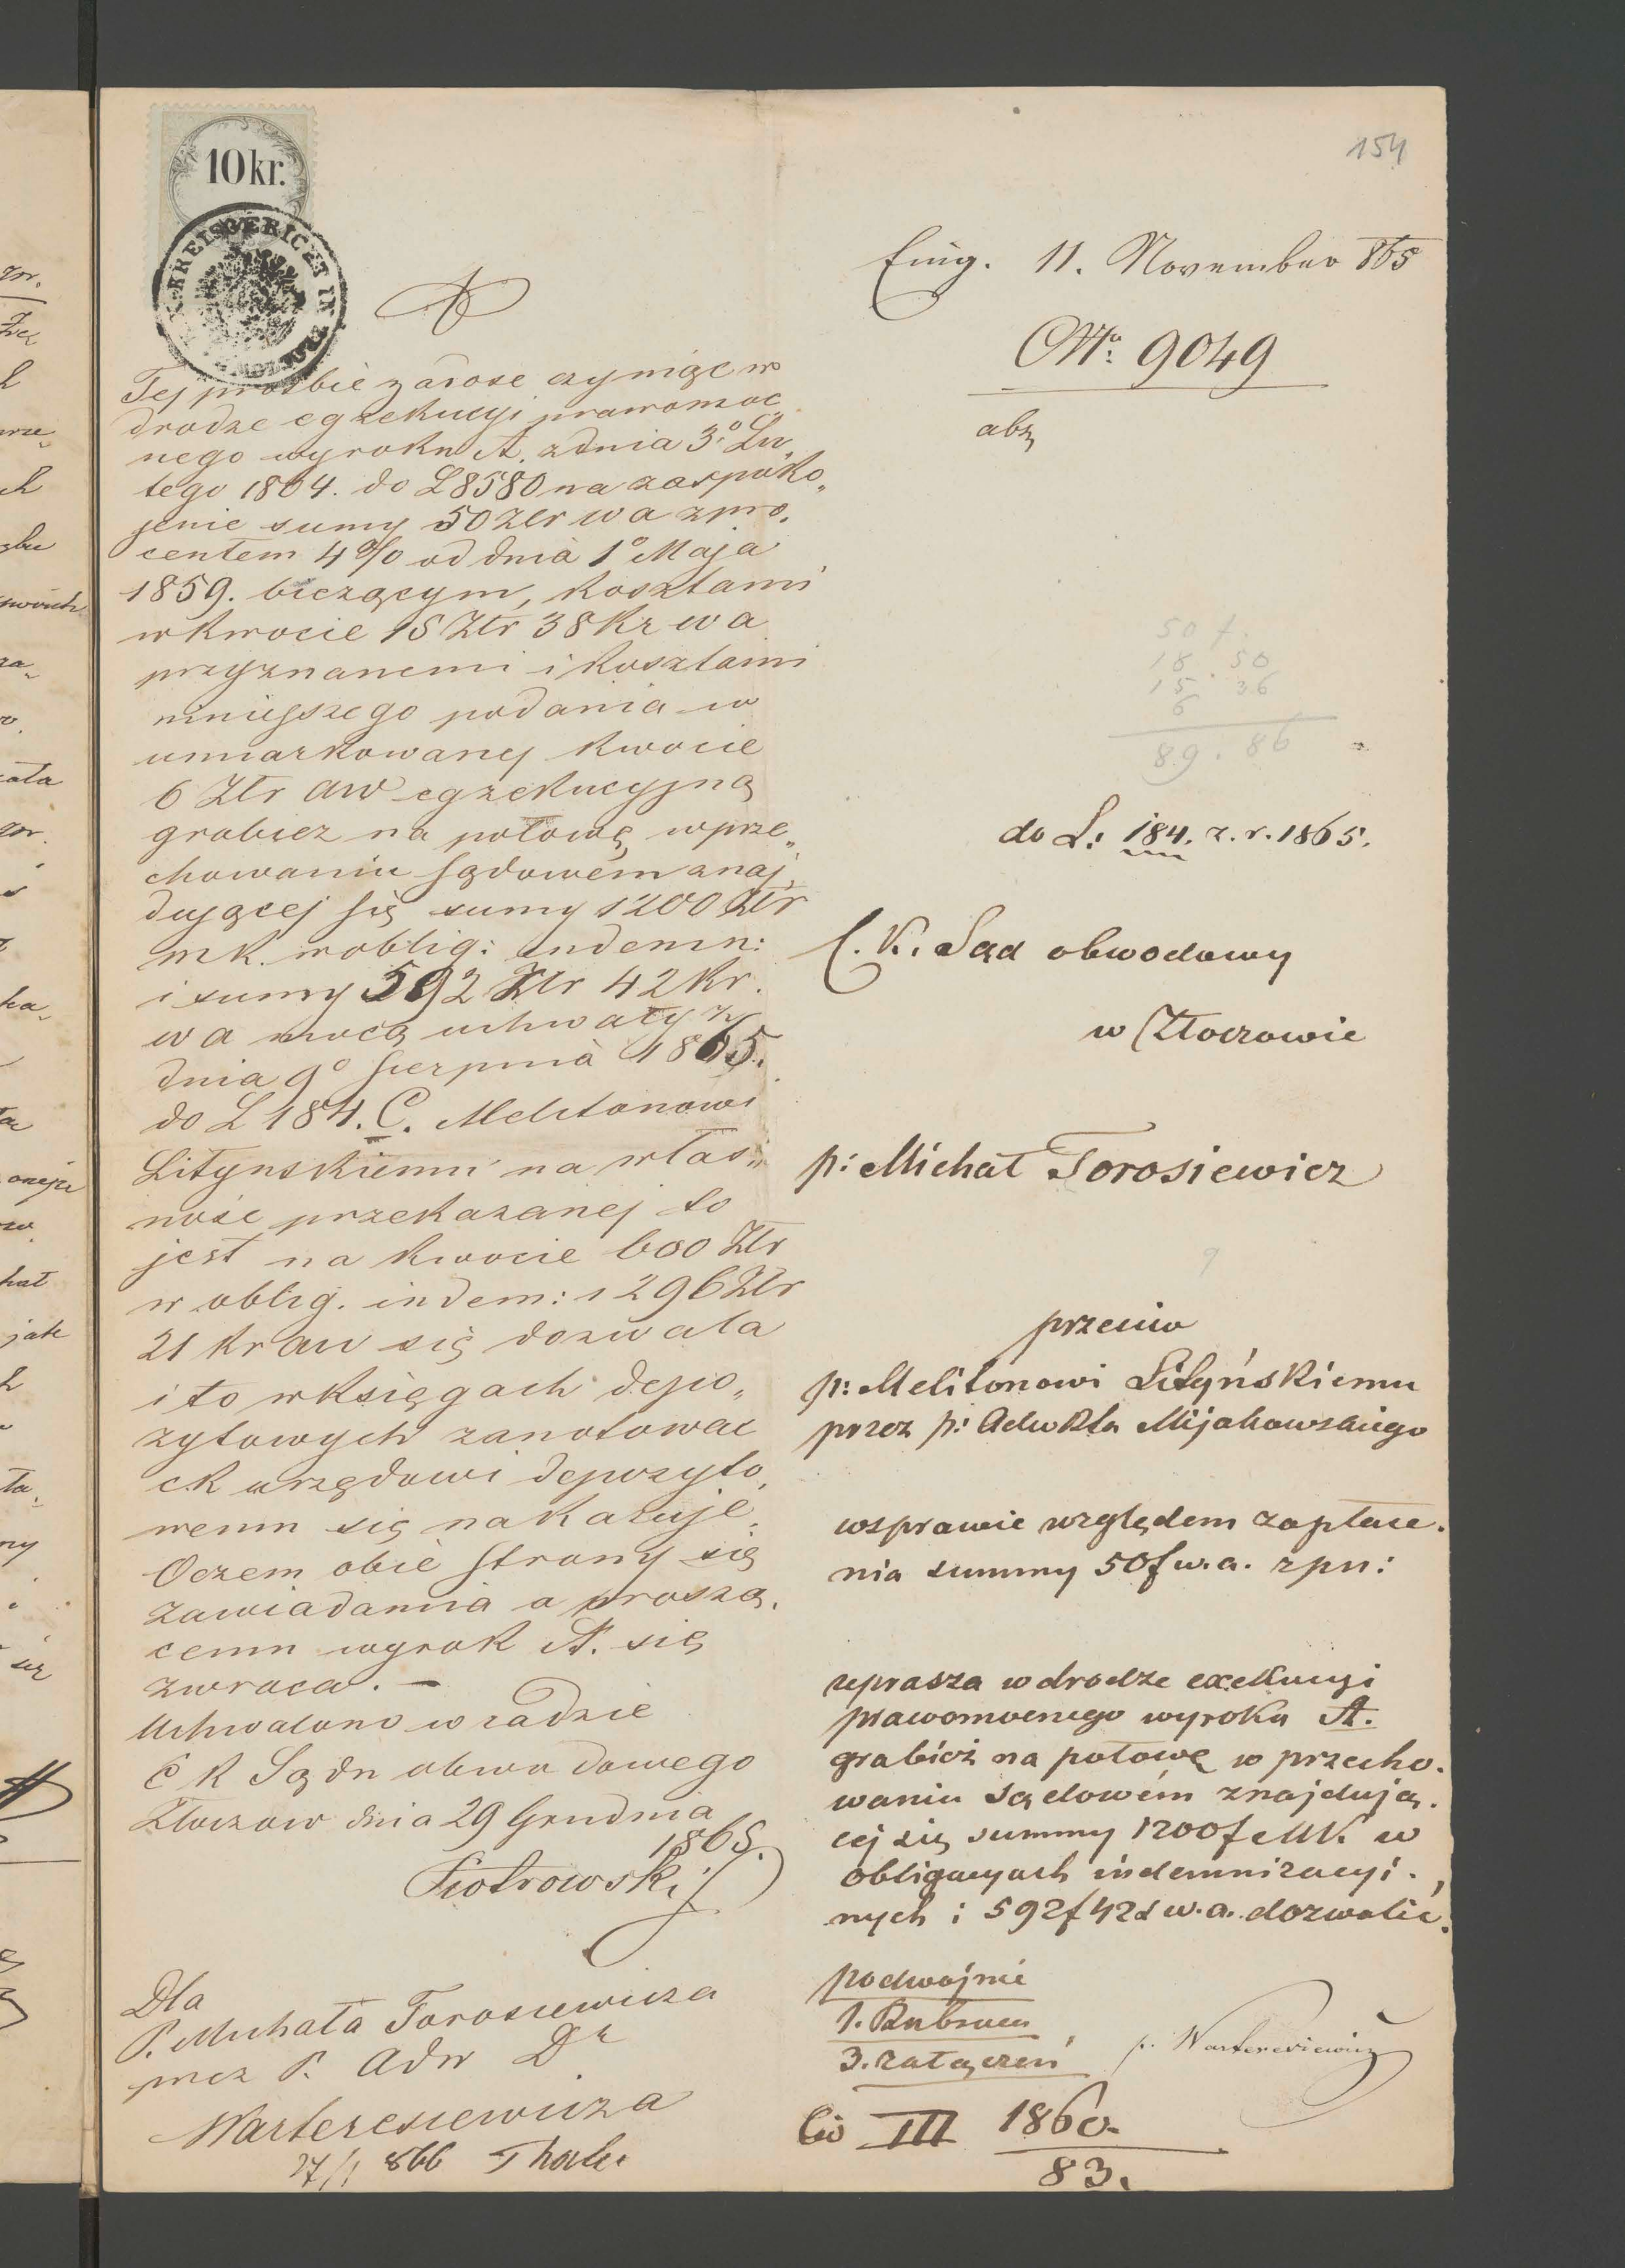 10 kr.
KREISGERICHT
Tej prośbie zadość czyniąc w
drodze egzekucyi prawomoc„
nego wyroku A. z dnia 3º Lu„
tego 1864. do L 8580 na zaspoko„
jenie sumy 50 Złr w a z pro„
centem 4% od dnia 1º Maja
1859. bieżącym, kosztami
w kwocie 15 Złr 38 Kr w a
przyznanemi i kosztami
niniejszego podania w
umiarkowanej kwocie
6 Złr aw egzekucyjną
grabież na połowę w prze„
chowaniu sądowém znaj„
dującej się sumy 1200 Złr
mk. w oblig: indemn:
i sumy 592 Złr 42 Kr.
w a mocą uchwały z
dnia 9º Sierpnia 1865.
do L 184. C. Melitonowi
Lityńskiemu na włas„
ność przekazanej to
jest na kwocie 600 Złr
w oblig. indem: i 296 Złr
21 kr aw się dozwala
i to w księgach depo„
zytowych zanotować
ck urzędowi depozyto„
wemu się nakazuje.
Oczem obie strony się
zawiadamia a proszą„
cemu wyrok A. się
zwraca. —
Uchwalono w radzie
C K Sądu obwodowego
Złoczow dnia 29 Grudnia
1865.
Piotrowski
Dla
P. Michała Torosiewicza
przez P. Adw Dr
Warteresiewicza
27/1 866
154
Eing. 11. November 865
Nr: 9049
abz
50 f.
18. 50
15. 36
6
89. 86
do L: 184. z. r. 1865.
C. K. Sąd obwodowy
w Złoczowie
p: Michał Torosiewicz
przeciw
p: Melitonowi Lityńskiemu
przez p: Adwkta Mijakowskiego
w sprawie względem zapłace„
nia summy 50 f w. a. z pn:
uprasza w drodze exekucyi
prawomocnego wyroku A.
grabież na połowę w przecho„
waniu sądowém znajdują„
cej się summy 1200 f MK. w
obligacyach indemnizacyj„
nych i 592 f 42 x w. a. dozwolić.
podwójnie
1. Rubrum
3. załączeń
p. Warteresiewicz
III 1860.
83.